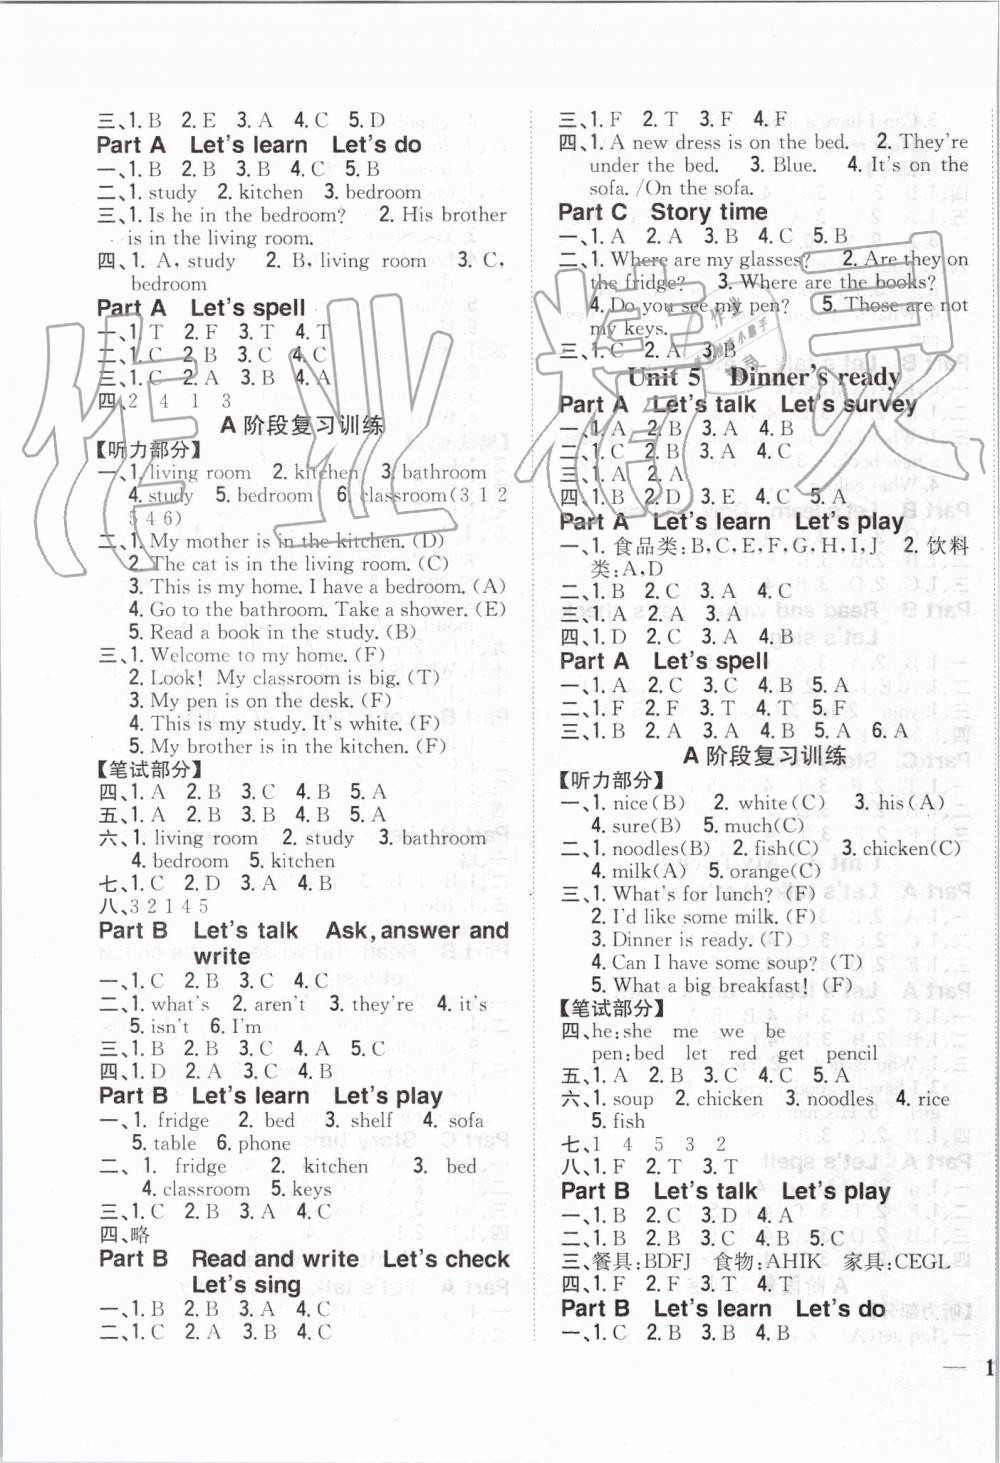 三、1. B 2. E 3. A 4. C 5. D
Part A Let's learn Let's do
一、1. B 2. B 3. B 4. C 5. B
二、1. study 2. kitchen 3. bedroom
三、1. Is he in the bedroom? 2. His brother
is in the living room.
四、1. A, study 2. B, living room 3. C,
bedroom
Part A Let's spell
一、1. T 2. F 3. T 4. T
二、1. C 2. B 3. C 4. C
三、1. C 2. A 3. B 4. A
四、2 4 1 3
A 阶段复习训练
【听力部分】
一、1. living room 2. kitchen 3. bathroom
4. study 5. bedroom 6. classroom(3 1 2
5 4 6)
二、1. My mother is in the kitchen. (D)
2. The cat is in the living room. (C)
3. This is my home. I have a bedroom. (A)
4. Go to the bathroom. Take a shower. (E)
5. Read a book in the study. (B)
三、1. Welcome to my home. (F)
2. Look! My classroom is big. (T)
3. My pen is on the desk. (F)
4. This is my study. It's white. (F)
5. My brother is in the kitchen. (F)
【笔试部分】
四、1. A 2. B 3. C 4. B 5. A
五、1. A 2. B 3. B 4. B 5. A
六、1. living room 2. study 3. bathroom
4. bedroom 5. kitchen
七、1. C 2. D 3. A 4. B
八、3 2 1 4 5
Part B Let's talk Ask, answer and
write
一、1. C 2. B 3. C 4. C
二、1. what's 2. aren't 3. they're 4. it's
5. isn't 6. I'm
三、1. B 2. B 3. C 4. A 5. C
四、1. D 2. A 3. C 4. B
Part B Let's learn Let's play
一、1. fridge 2. bed 3. shelf 4. sofa
5. table 6. phone
二、1. fridge 2. kitchen 3. bed
4. classroom 5. keys
三、1. C 2. B 3. A 4. C
四、略
Part B Read and write Let's check
Let's sing
一、1. B 2. B 3. A 4. C
二、1. C 2. A 3. B 4. C
三、1. F 2. T 3. F 4. F
四、1. A new dress is on the bed. 2. They're
under the bed. 3. Blue. 4. It's on the
sofa. /On the sofa.
Part C Story time
一、1. A 2. A 3. B 4. C 5. B
二、1. Where are my glasses? 2. Are they on
the fridge? 3. Where are the books?
4. Do you see my pen? 5. Those are not
my keys.
三、1. C 2. A 3. B
Unit 5 Dinner's ready
Part A Let's talk Let's survey
一、1. A 2. B 3. A 4. B
二、1. C 2. B 3. A 4. C
三、1. A 2. A
四、1. B 2. D 3. E 4. C 5. A
Part A Let's learn Let's play
一、1. 食品类:B,C,E,F,G,H,I,J 2. 饮料
类:A,D
二、1. B 2. C 3. A 4. C
三、1. A 2. A 3. A
四、1. D 2. C 3. A 4. B
Part A Let's spell
一、1. A 2. C 3. C 4. B 5. A
二、1. F 2. F 3. T 4. T 5. F
三、1. B 2. A 3. A 4. B 5. A 6. A
A 阶段复习训练
【听力部分】
一、1. nice(B) 2. white(C) 3. his(A)
4. sure(B) 5. much(C)
二、1. noodles(B) 2. fish(C) 3. chicken(C)
4. milk(A) 5. orange(C)
三、1. What's for lunch? (F)
2. I'd like some milk. (F)
3. Dinner is ready. (T)
4. Can I have some soup? (T)
5. What a big breakfast! (F)
【笔试部分】
四、he:she me we be
pen:bed let red get pencil
五、1. A 2. B 3. C 4. C 5. A
六、1. soup 2. chicken 3. noodles 4. rice
5. fish
七、1 4 5 3 2
八、1. F 2. T 3. T
Part B Let's talk Let's play
一、1. B 2. C 3. D 4. A
二、1. B 2. B 3. C 4. B 5. C
三、餐具:BDFJ 食物:AHIK 家具:CEGL
四、1. F 2. F 3. T 4. T
Part B Let's learn Let's do
一、1. C 2. B 3. B 4. B
— 1
作业精灵